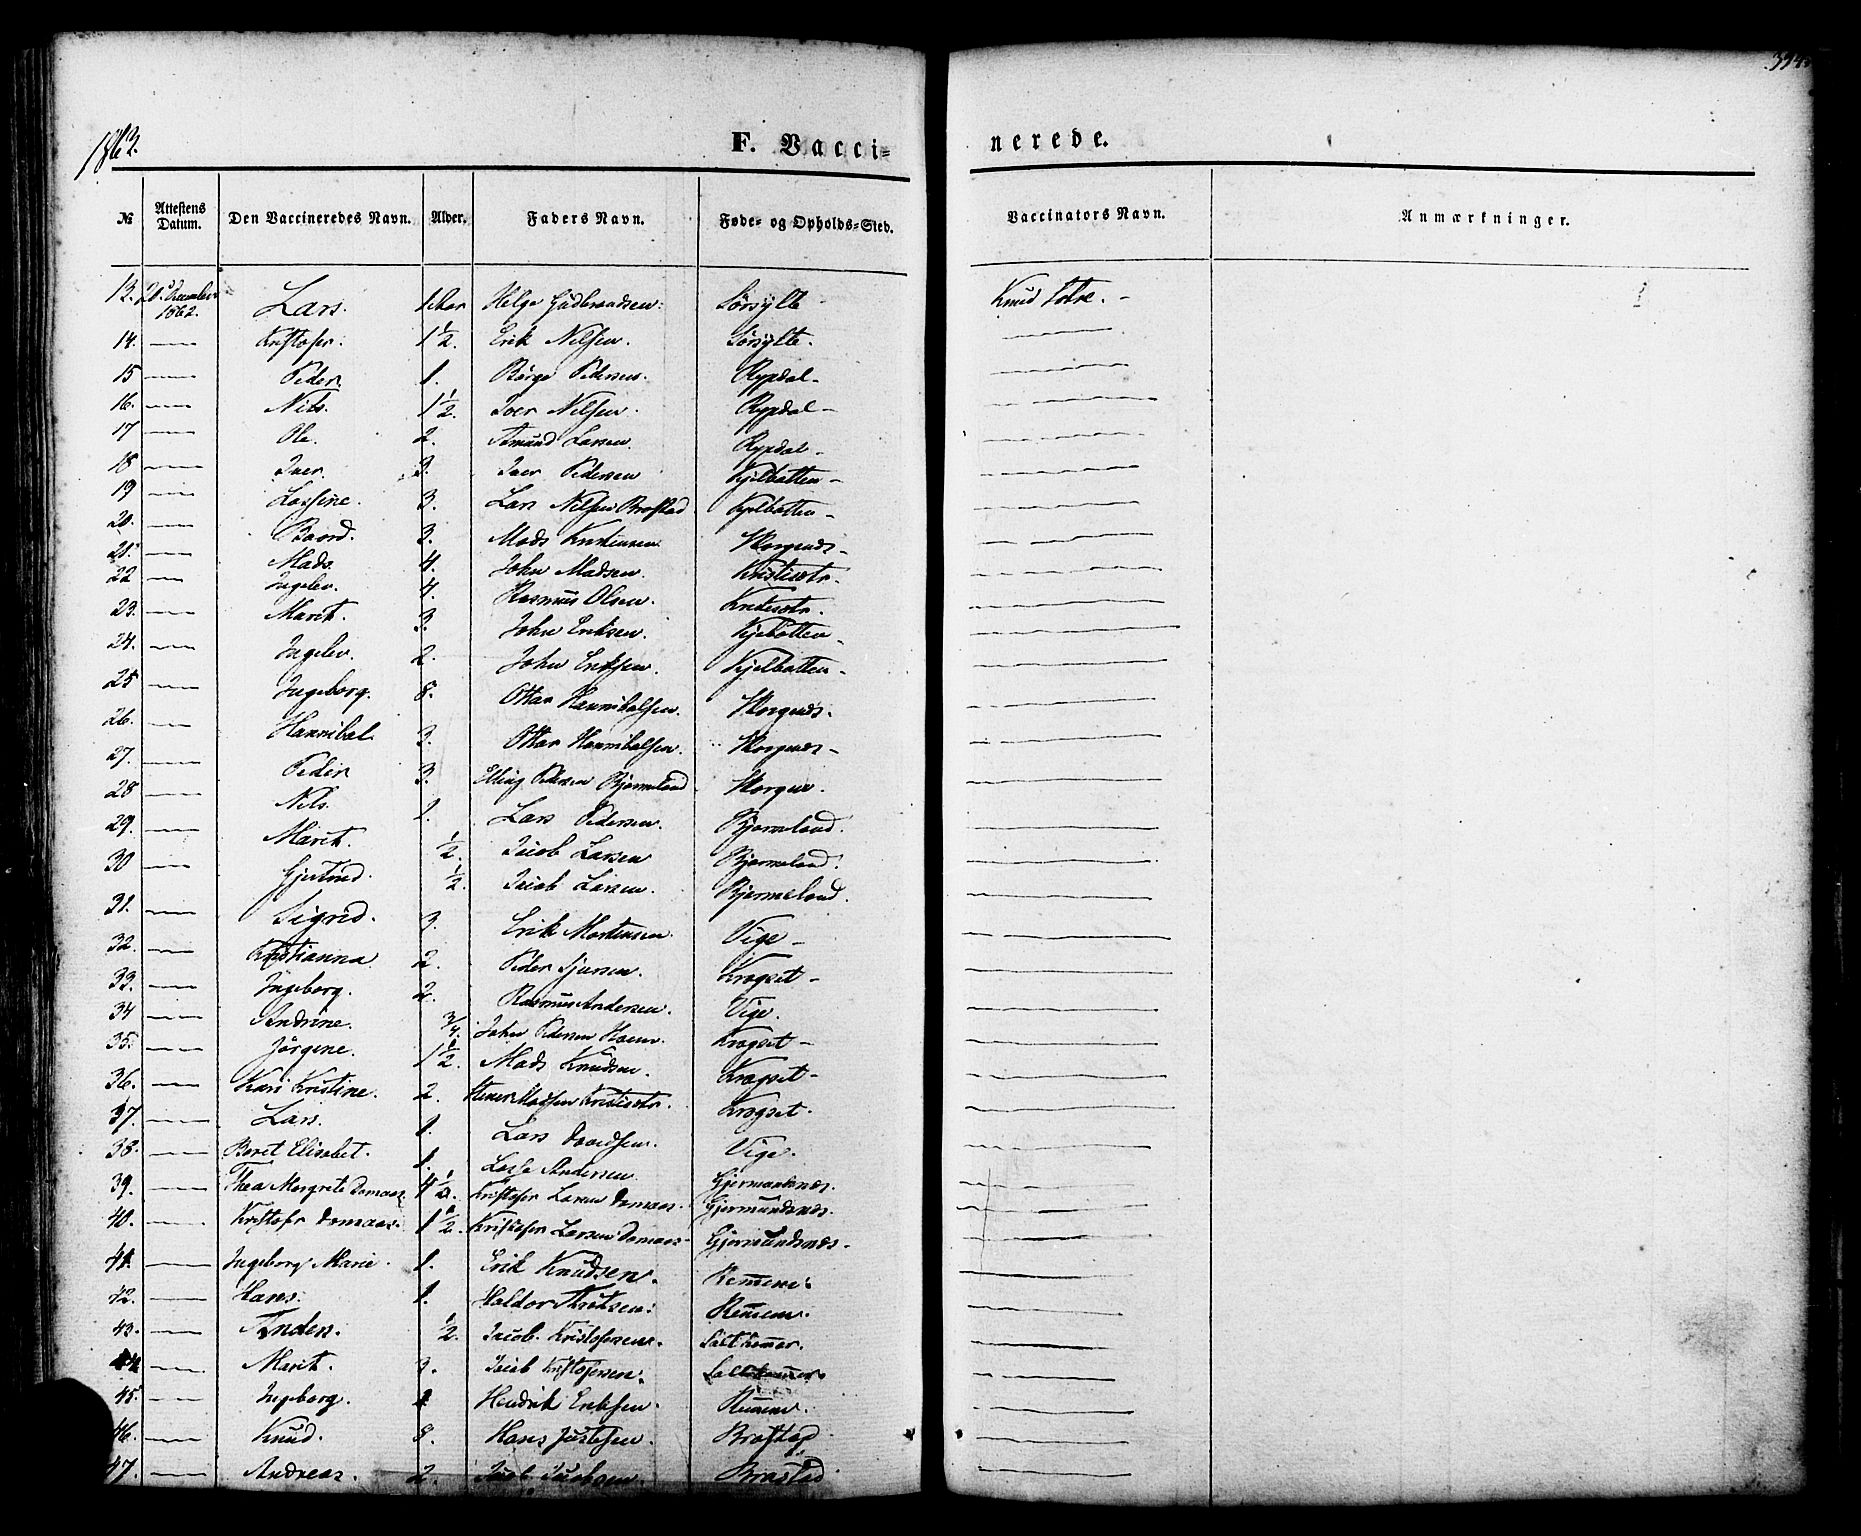 394
1862.
F. Vacci-
nerede.
№ Attestens Datum. Den Vaccineredes Navn. Alder. Faders Navn. Føde- og Opholds-Sted. Vaccinators Navn. Anmærkninger.
13. 20. December 1862. Lars. 1 Aar Helge Gudbrandsen. Sørsylte Knud
14. — Kristofer. 1 1/2. Erik Nilsen. Sørsylte. —
15 — Peder 1. Børge Pedersen. Rypdal — —
16. — Nils. 1 1/2. Iver Nilsen. Rypdal — —
17 — Ole. 2. Amund Larsen Rypdal — —
18 — Iver 3. Iver Pedersen Kjelbotten — —
19 — Lassine. 3. Lars Nilsen Brastad Kjelbotten — —
20. — Baard. 3. Mads Kristensen Skorgenes — —
21. — Mads. 4. John Madsen. Kristisætr. —
22 — Ingelev. 4. Rasmus Olsen. Kristisætr. —
23. — Marit. 3. John Eriksen. Kjelbotten — —
24. — Ingelev. 2. John Eriksen. Kjelbotten — —
25 — Ingeborg. 8. Ottar Hannibalsen. Skorgenes. —
26. — Hannibal 3. Ottar Hannibalsen. Skorgenes — —
27. — Peder 3. Elling Pedersen Bjermeland Skorgen. —
28 — Nils. 1. Lars Pedersen. Bjermeland. —
29. — Marit. 1/2. Jacob Larsen Bjermeland. —
30 — Gjertrud. 1/2. Jacob Larsen. Bjermeland. —
31. — Sigrid. 3. Erik Mortensen. Vige — —
32. — Kristianna 2. Peder Sjursen. Kragset — —
33. — Ingeborg. 2. Rasmus Andersen. Vige. —
34 — Andrine. 3/4. John Pedersen Kragset — —
35. — Jørgene. 1 1/2. Mads Knudsen. Kragset — —
36. — Kari Kristine. 2. Madsen Kristisætr. Kragset. —
37. — Lars. 1. Lars Davidsen. Vige. —
38. — Beret Elisabet. 1. Lasse Andersen Gjermundsnæs. —
39. — Thea Margrete Domaas 4 1/2. Kristofer Larsen Domaas. Gjermundsnæs. —
40. — Kristofer Domaas. 1 1/2. Kristofer Larsen Domaas Gjermundsnæs — —
41. — Ingeborg Marie. 1. Erik Knudsen. Remmem. —
42. — Hans. 1. Haldor Knudsen. Remmem. —
43. — Anders. 1/2. Jacob Kristofersen. Saltkammer. —
44 — Marit. 3. Jacob Kristofersen. Saltkammer. —
45. — Ingeborg. 1 Hendrik Eriksen. Remmem. —
46. — Knud. 8. Hans Justesen. Brastad —
47. — Andreas. 2. Jacob Jacobsen. Brastad —